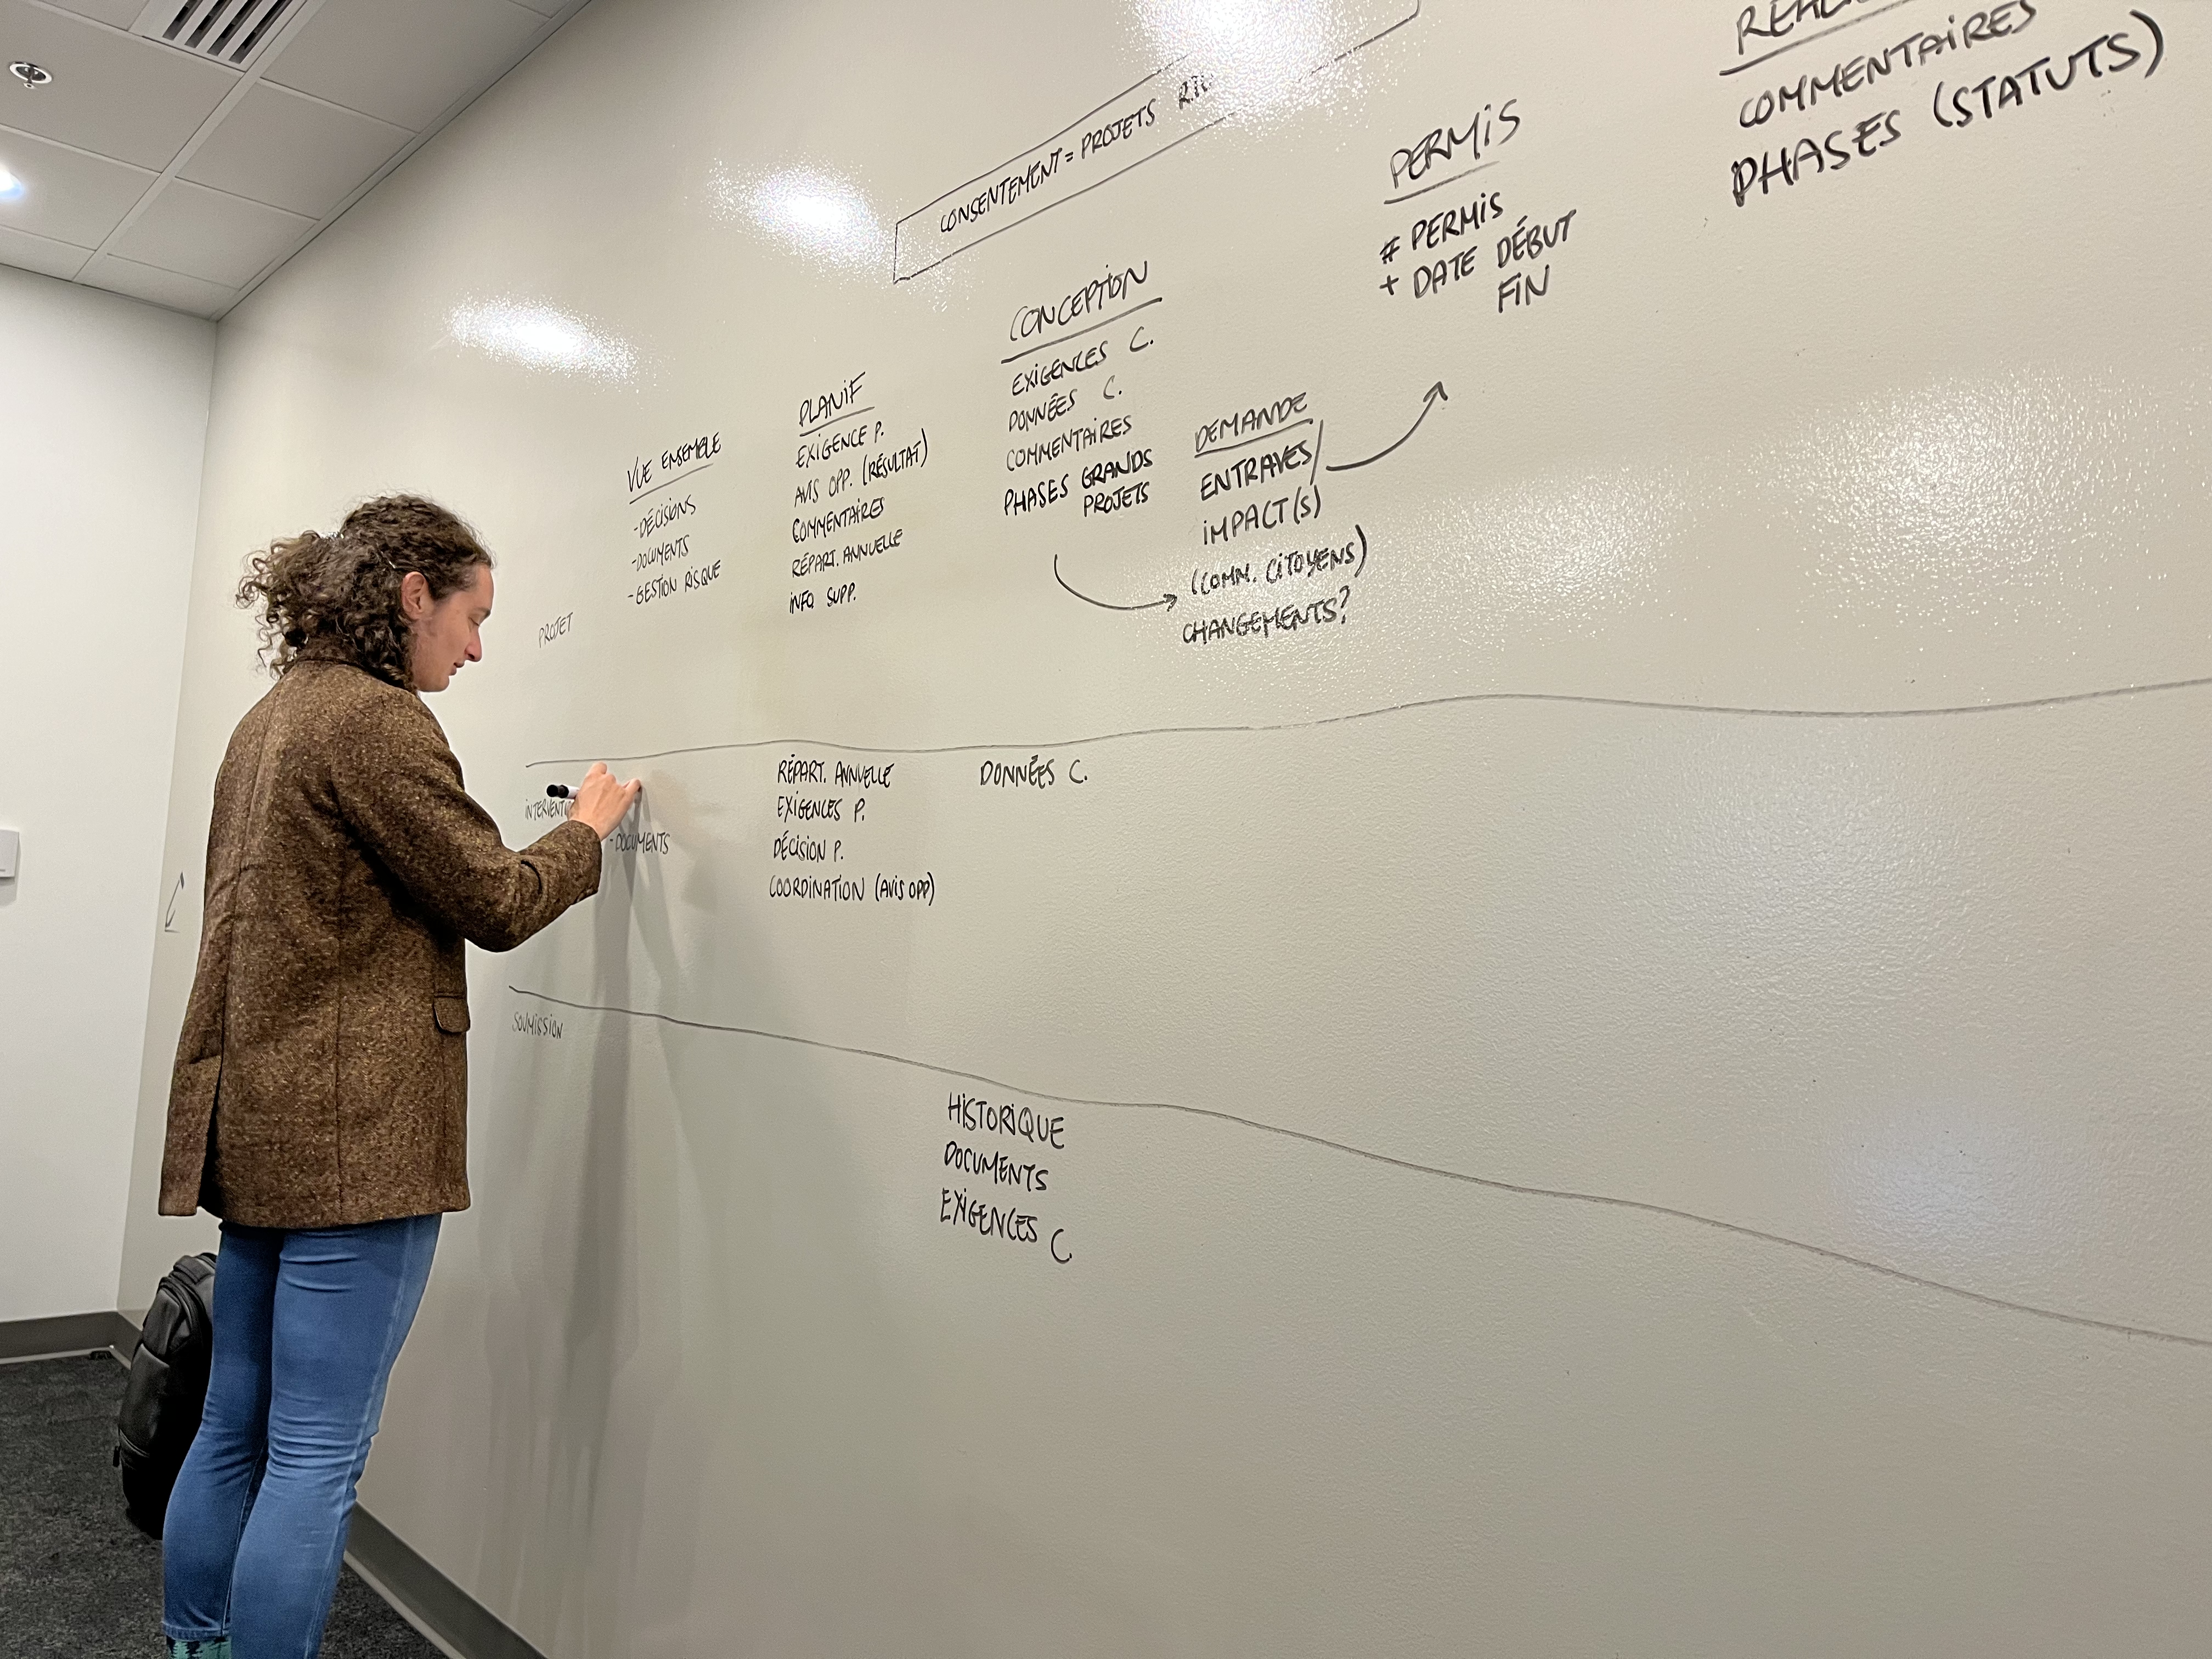 CONSENTEMENT = PROJETS
COMMENTAIRES
PHASES (STATUTS)
PERMIS
# PERMIS
+ DATE DÉBUT
FIN
CONCEPTION
EXIGENCES C.
DONNÉES C.
COMMENTAIRES
PHASES GRANDS
PROJETS
DEMANDE
ENTRAVES/
IMPACT(S)
(COMM. CITOYENS)
CHANGEMENTS?
PLANIF
EXIGENCE P.
AVIS OPP. (RÉSULTAT)
COMMENTAIRES
RÉPART. ANNUELLE
INFO SUPP.
VUE ENSEMBLE
-DÉCISIONS
-DOCUMENTS
-GESTION RISQUE
PROJET
-DOCUMENTS
RÉPART. ANNUELLE
EXIGENCES P.
DÉCISION P.
COORDINATION (AVIS OPP)
DONNÉES C.
SOUMISSION
HISTORIQUE
DOCUMENTS
EXIGENCES C.